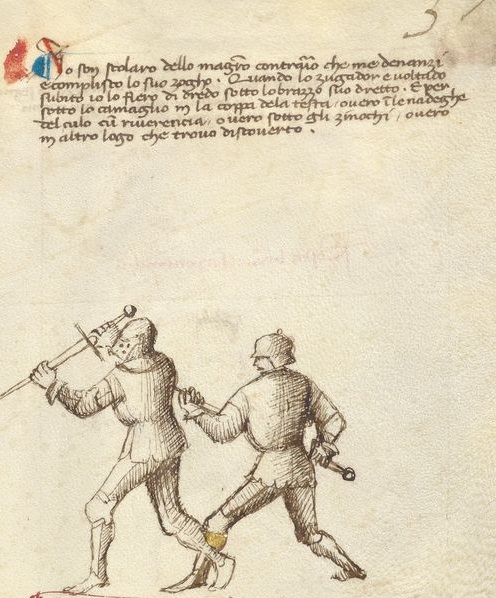 Io son scolaro dello magro contraio che me denanzi
e complisco lo suo zogho. Quando lo zugador e voltado
subito io lo fiero di dredo sotto lo brazzo suo dretto. E per
sotto lo camaglio in la coppa dela testa / overo i le nadeghe
del culo cu riverencia / overo sotto gli zinochi / overo
in altro logo che trovo discoverto.